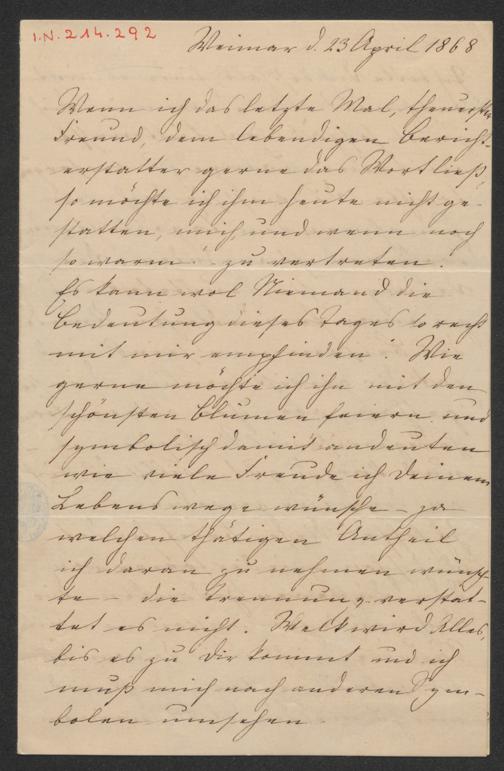 I.N. 214.292
Weimar d. 23 April 1868
Wenn ich das letzte Mal, theuerster
Freund, dem lebendigen Bericht-
erstatter gerne das Wort ließ,
so möchte ich ihm heute nicht ge-
statten, mich, und wenn noch
so warm! zu vertreten.
Es kann wol Niemand die
Bedeutung dieses Tages so recht
mit mir empfinden! Wie
gerne möchte ich ihn mit den
schönsten Blumen feiern und
symbolisch damit andeuten
wie viele Freude ich Deinem
Lebenswege wünsche – ja
welchen thätigen Antheil
ich daran zu nehmen wünsch-
te – die Trennung verstat-
tet es nicht. Welk wird Alles,
bis es zu Dir kommt und ich
muß mich nach anderen Sym-
bolen umsehen